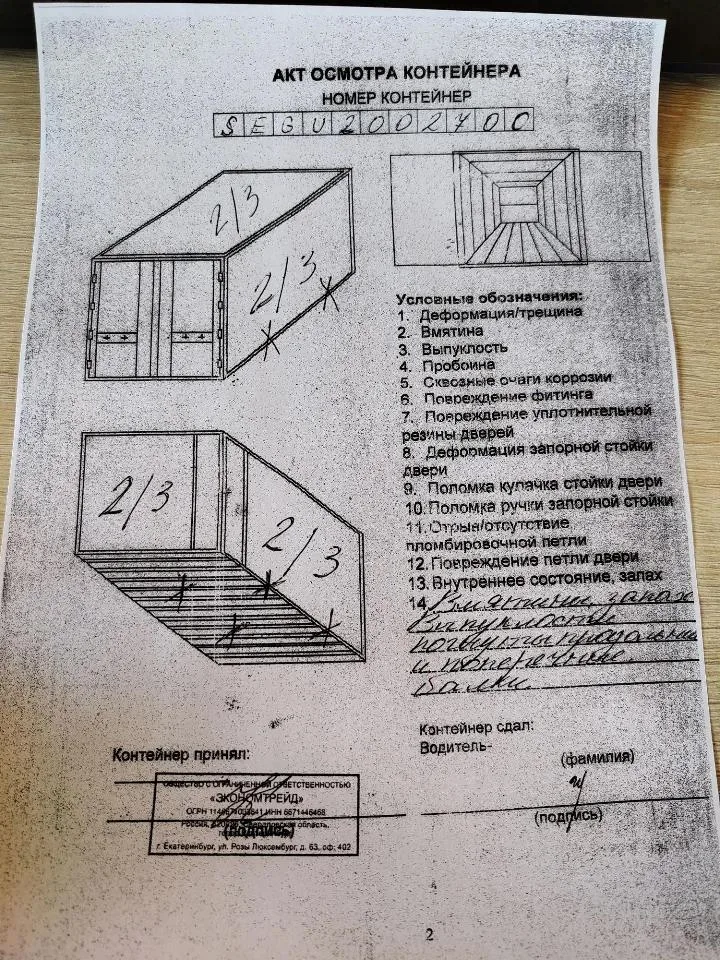 АКТ ОСМОТРА КОНТЕЙНЕРА
НОМЕР КОНТЕЙНЕР
SEGU2002700
2/3
2/3
Условные обозначения:
1. Деформация/трещина
2. Вмятина
3. Выпуклость
4. Пробоина
5. Сквозные очаги коррозии
6. Повреждение фитинга
7. Повреждение уплотнительной
резины дверей
8. Деформация запорной стойки
двери
9. Поломка кулачка стойки двери
10. Поломка ручки запорной стойки
11. Отрыв/отсутствие
пломбировочной петли
12. Повреждение петли двери
13. Внутреннее состояние, запах
14. Вмятины, запах
Выпуклости
погнуты продольные
и поперечные
балки.
2/3
2/3
Контейнер принял:
ОБЩЕСТВО С ОГРАНИЧЕННОЙ ОТВЕТСТВЕННОСТЬЮ
«ЭКОНОМТРЕЙД»
ИНН 6671446468
Россия, Свердловская область,
(подпись)
г. Екатеринбург, ул. Розы Люксембург, д. 63, оф. 402
Контейнер сдал:
Водитель-
(фамилия)
(подпись)
2